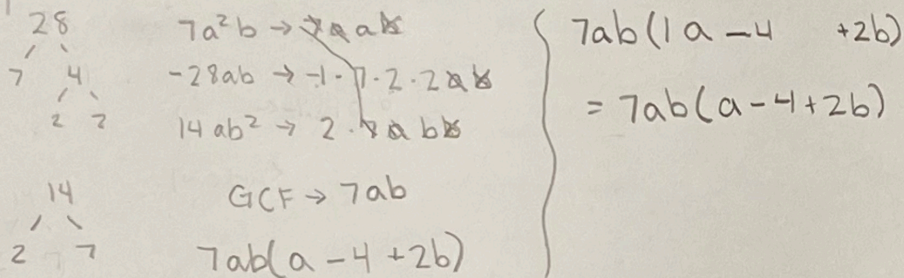 28
7 4
2 2
7a²b → 7aab
-28ab → -1·7·2·2ab
14ab² → 2·7abb
14
2 7
GCF → 7ab
7ab(a - 4 + 2b)
7ab(1a - 4 + 2b)
= 7ab(a - 4 + 2b)